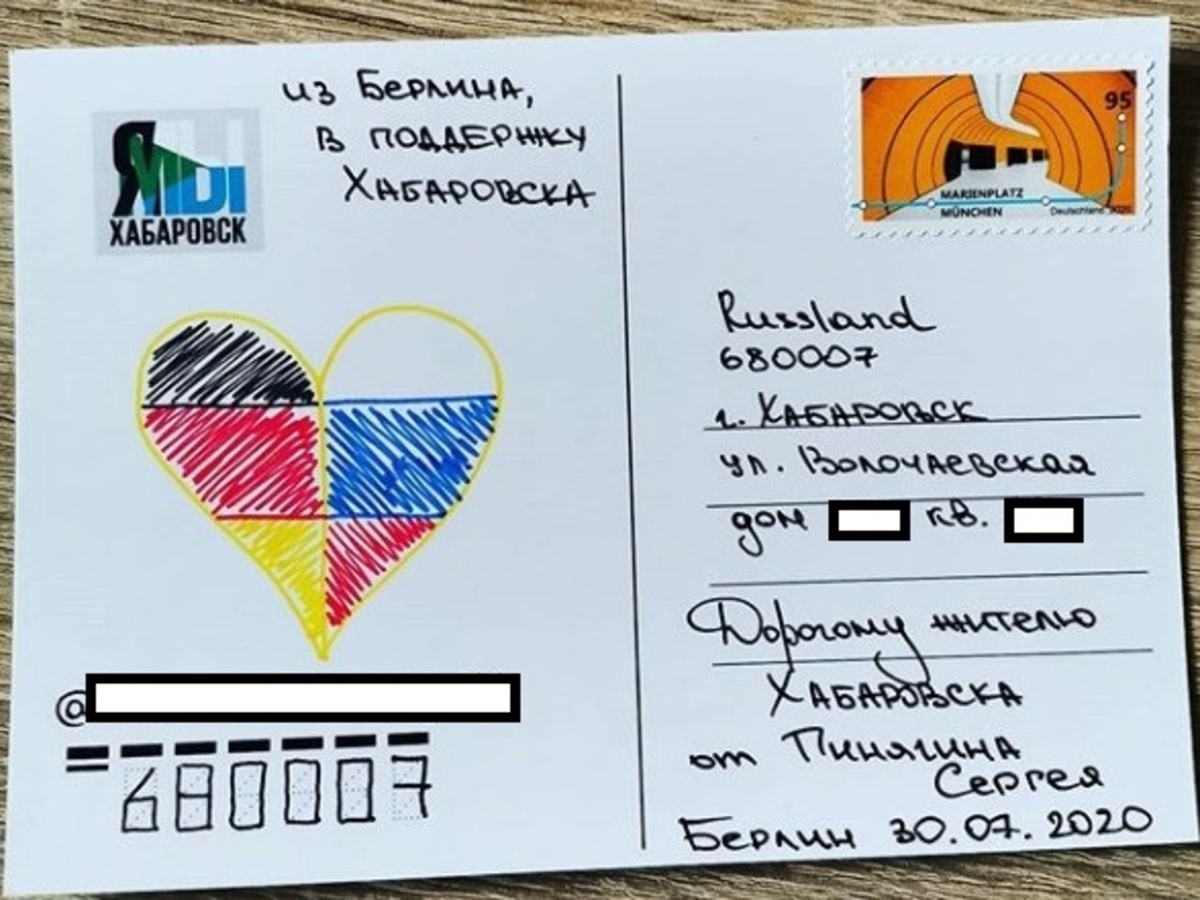 из Берлина,
в поддержку
Хабаровска
ЯМЫ
ХАБАРОВСК
@
680007
95
MARIENPLATZ
MÜNCHEN
Deutschland 2020
Russland
680007
г. Хабаровск
ул. Волочаевская
дом кв.
Дорогому жителю
Хабаровска
от Пинягина
Сергея
Берлин 30.07.2020